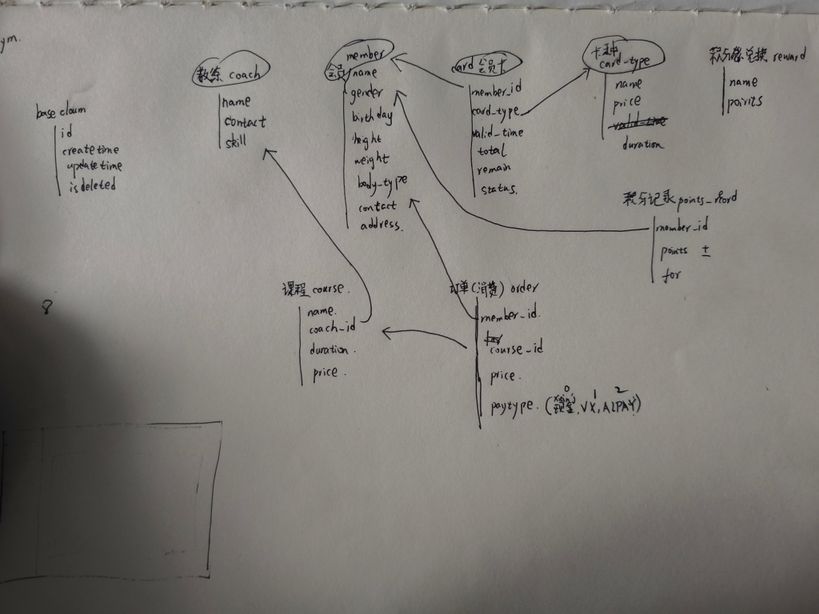 ym.
base cloum
id
create time
update time
is deleted
8
教练 coach
name
contact
skill
member
会员
name
gender
birthday
height
weight
body-type
contact
address.
card 会员卡
member_id
card-type
valid-time
total
remain
status.
卡种
card-type
name
price
duration
reward
name
points
积分记录
member_id
points ±
for
课程 course.
name.
coach_id
duration.
price.
订单(消费) order
member_id.
course_id
price.
paytype. (现金, VX, AIPAY)
0 1 2